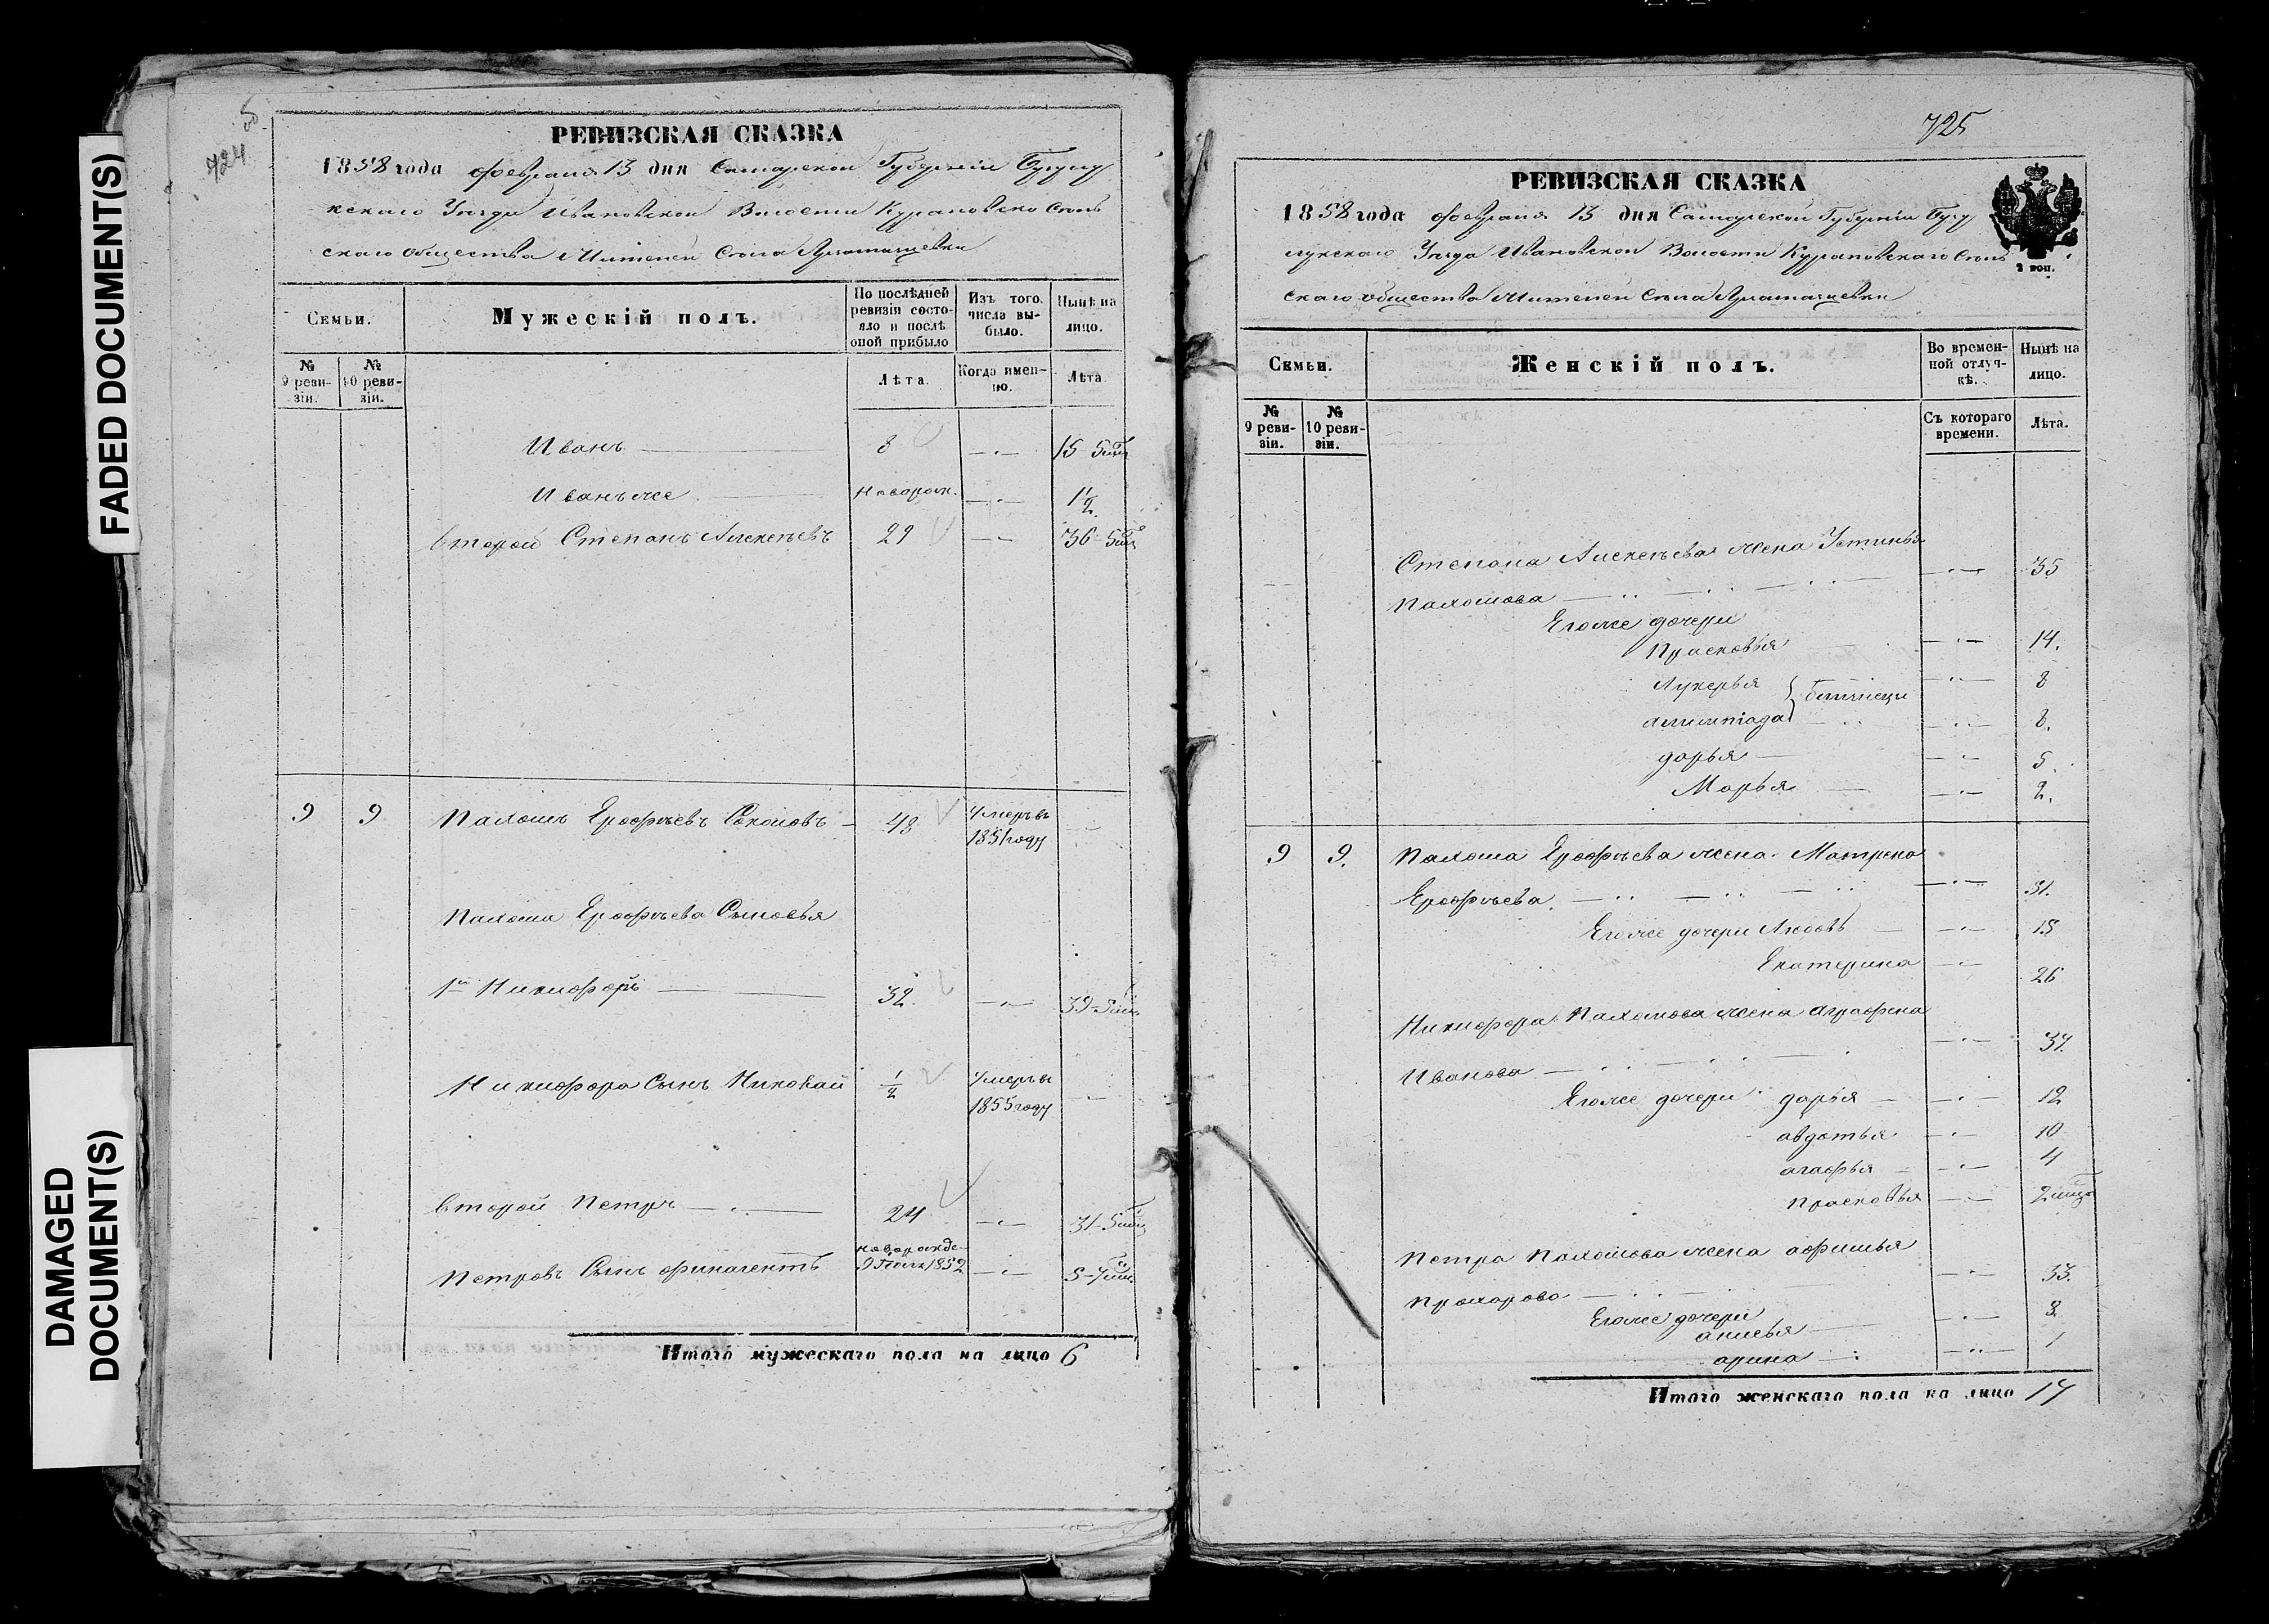 FADED DOCUMENT(S)
DAMAGED
DOCUMENT(S)
724
РЕВИЗСКАЯ СКАЗКА
1858 года февраля 13 дня Самарской Губерніи Бугу
Уезда Ивановской Волости
скаго общества Жителей Села
Семьи. Мужескій полъ. По послѣдней ревизіи состояло и послѣ оной прибыло Изъ того числа выбыло. Нынѣ на лицо.
№ 9 ревизіи. № 10 ревизіи. Лѣта. Когда именно. Лѣта.
Иванъ 8 15
Иванъ же 1 1/2
второй Степанъ Алексѣевъ 29 36
9 9 Пахомъ Ерофѣевъ 48 Умеръ въ
1851 году
Пахома Ерофѣева Сыновья
1й Никифоръ 32 39
Никифора Сынъ Николай 1/2 Умеръ въ
1855 году
второй Петръ 24 31
Петровъ Сынъ 1852 5
Итого мужескаго пола на лицо 6
725
РЕВИЗСКАЯ СКАЗКА
2 коп.
1858 года февраля 13 дня Самарской Губерніи Бугу
Уезда Ивановской Волости
скаго общества Жителей Села
Семьи. Женскій полъ. Во временной отлучкѣ. Нынѣ на лицо.
№ 9 ревизіи. № 10 ревизіи. Съ котораго времени. Лѣта.
Степана Алексѣева жена Устинья
Пахомова 35
Егоже дочери
Прасковья 14.
Лукерья 8
8.
дарья 5.
Марья 2.
9 9. Пахома Ерофѣева жена Матрена
Ерофѣева 51.
Егоже дочери Любовь 18
Екатерина 26
Никифора Пахомова жена аграфена
Иванова 37.
Егоже дочери дарья 12
авдотья 10
агафья 4
Прасковья 2
Петра Пахомова жена
Прохорова 33.
Егоже дочери
8
арина 1
Итого женскаго пола на лицо 17